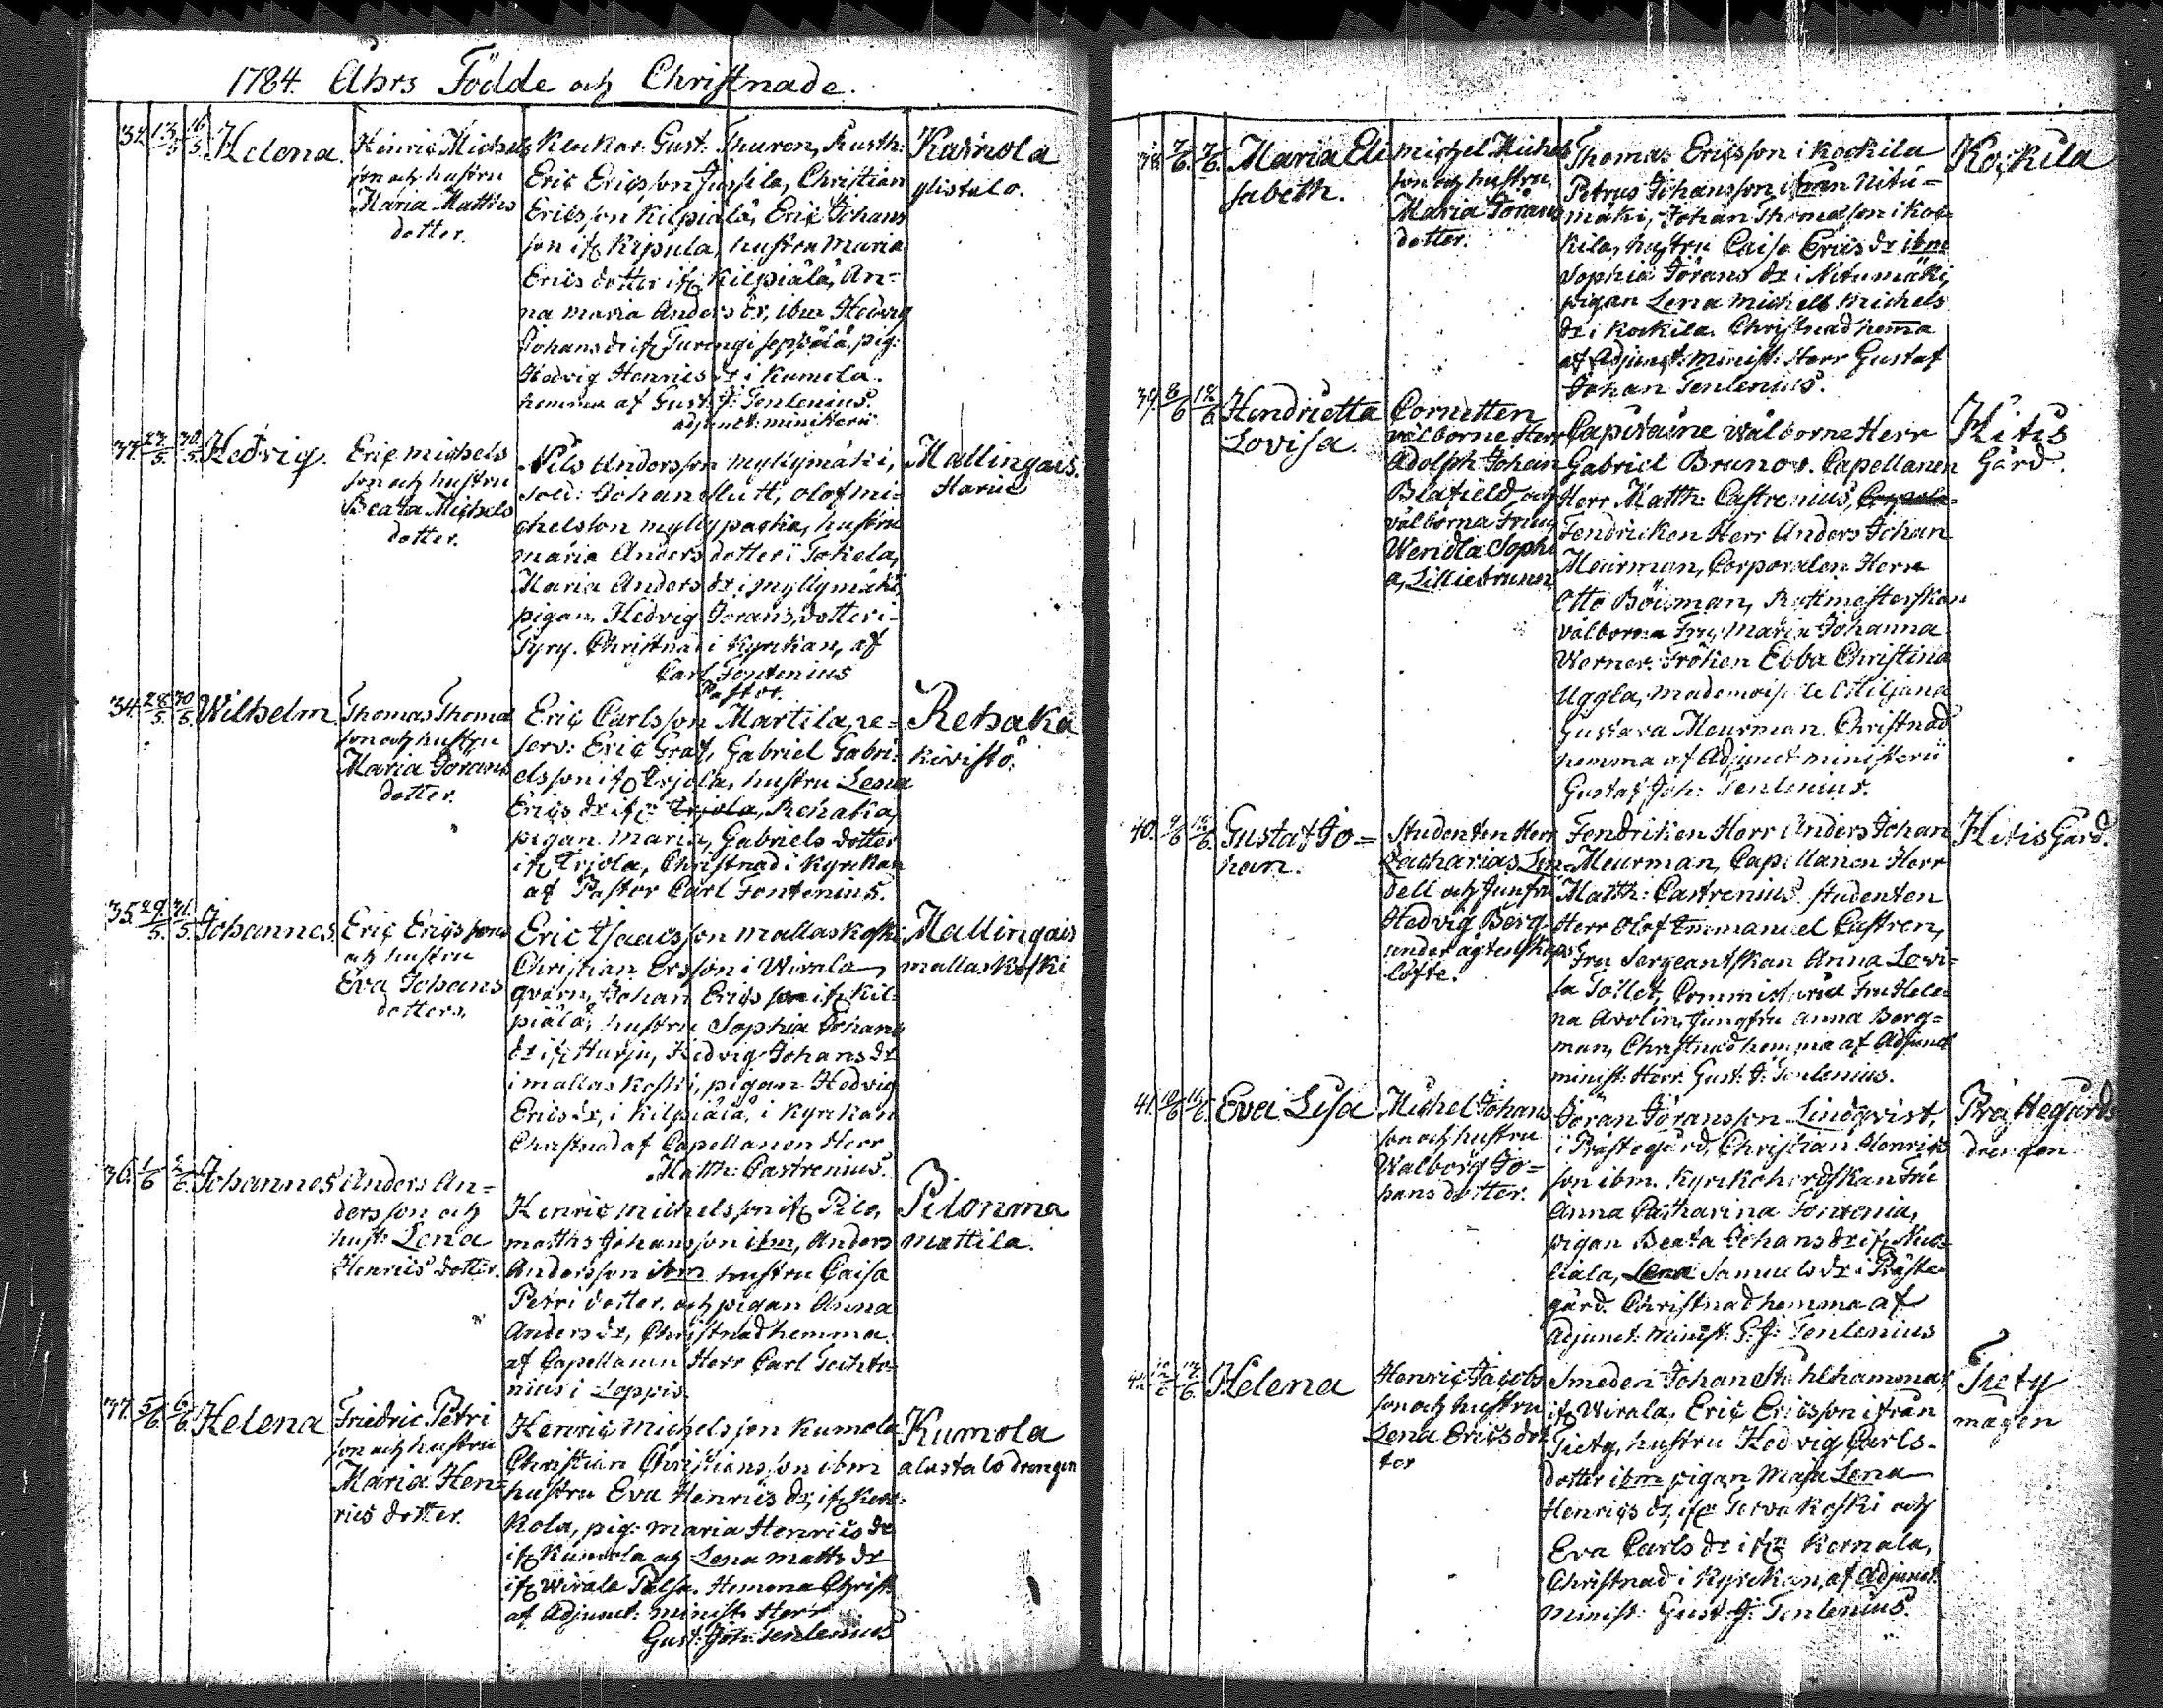 1784. Ahrs Födde och Christnade.
32. 13/5 16/5 Helena.
Henric Michels
son och hustru
Maria Matths
dotter.
Klockar. Gust: Thuren, Rusth:
Eric Ericsson Jussila, Christian
Ericsson Kilpiälä, Eric Johans
son ifr. Kipula, hustru Maria
Erics dotter ifr. Kilpiälä, An=
na Maria Anders dr, ibm Hedvig
Johans dr ifr. Turengi seppälä, pig:
Hedvig Henrics dr i Kumola.
hemma af Gust: J: Tenlenius.
adjunct: ministerii
Kaimola
ylistalo.
33. 27/5 30/5 Hedvig.
Eric Michels
son och hustru
Beata Michels
dotter.
Nils Andersson Myllymäki,
sold: Johan Slutt, Olof Mi=
chelsson myllypaskia, hustru
Maria Anders dotter i Tokela,
Maria Anders dr i myllymäki
pigan Hedvig Jörans dotter i
Tyry. Christnad i Kyrckan, af
Carl Fontenius
Pastor.
Mallingais.
Hariu
34. 28/5 30/5 Wilhelm
Thomas Thomas
son och hustru
Maria Jörans
dotter.
Eric Carlsson Martila, re=
serv: Eric Graf, Gabriel Gabri=
elsson ifr. Erjola, hustru Lena
Erics dr ifr. Erjola, Rehaka,
pigan Maria, Gabriels dotter
ifr. Erjola, Christnad i Kyrckan
af Pastor Carl Fontenius.
Rehaka
Kivistö.
35. 29/5 31/5 Johannes
Eric Ericssons
och hustru
Eva Johans
dotters.
Eric Isaacsson Mallaskoski
Christian Ersson i Wirala
qvarn, Johan Ericsson ifr. Kil=
piälä, hustru Sophia Johans
dr ifr. Harju, Hedvig Johans dr
i mallaskoski, pigan Hedvig
Erics dr, i Kilpiälä, i Kyrckan
Christnad af Capellanen Herr
Matth: Castrenius.
Mallingais
mallaskoski
36. 1/6 2/6 Johannes
Anders An=
dersson och
hust: Lena
Henrics dotter.
Henric Michelsson ifr. Pilo,
matths Johansson ibm, Anders
Andersson ibm hustru Caisa
Petri dotter, och pigan Anna
Anders dr, Christnad hemma
af Capellanen Herr Carl
nius i Loppis.
Pilonma
mattila.
37. 5/6 6/6 Helena
Friedric Petri
son och hustru
Maria Hen=
rics dotter.
Henric Michelsson Kumola
Christian Christiansson ibm
hustru Eva Henrics dr, ifr. Kers=
kola, pig: Maria Henrics dr
ifr. Kumola och Lena Matts dr
ifr. Wirala Hemma Christ:
af Adjunct: minist: Herr
Gust: Joh: Tenlenius
Kumola
alastalo drengen
38. 7/6 7/6 Maria Eli
sabeth.
Michel Michels
son och hustru
Maria Jörans
dotter.
Thomas Ericsson i Kockila
Petrus Johansson ifrån Nitu=
mäki, Johan Thomasson i Koc=
kila, hustru Caisa Erics dr ibm
Sophia Jörans dr i Nitumäki,
pigan Lena Michels Michels
dr i Kockila. Christnad hemma
af Adjunct: minist: Herr Gustaf
Johan Tenlenius.
Kockila
39. 8/6 12/6 Hendrietta
Lovisa.
Cornetten
välborne Herr
Adolph Johan
Blåfield, och
välborna Fru
Wendla Sophi
a, Lilliebrunn
Capitaine Wälborne Herr
Gabriel Bruno. Capellanen
Herr Matth: Castrenius,
Fendricken Herr Anders Johan
Meurman, Corporalen Herr
Otto Böisman, Ryttmesterskan
välborna Fru, Maria Johanna
Werner, Fröken Ebba Christina
Uggla, mademoiselle Ottiljana
Gustava Meurman. Christnad
hemma af Adjunct ministerii
Gustaf Joh: Tenlenius.
Hitis
Gård.
40. 9/6 12/6 Gustaf Jo=
han.
Studenten Herr
Zacharias Lin
dell och Junfru
Hedvig Berg
under ägtenskaps
löfte.
Fendriken Herr Anders Johan
Meurman, Capellanen Herr
Matth: Castrenius, studenten
Herr Olof Emmanuel Castren,
Fru Sergeantskan Anna Lovi=
sa Tollet, Fru Hele=
na Avolin, Jungfru Anna Berg=
man, Christnad hemma af Adjunct
minist: Herr Gust: J: Tenlenius.
Hitis Gård.
41. 10/6 11/6 Eva Lisa
Michel Johans
son och hustru
Walborg Jo=
hans dotter.
Jöran Jöransson Lindqvist,
i Prästegård, Christian Henrics
son ibm. Kyrkoherdskan Fru
Anna Catharina Fontenia,
pigan Beata Johans dr ifr.
Lena Samuels dr i Präste
gård. Christnad hemma af
Adjunct: minist: G: J: Tenlenius
Prästegårds
drengen
42. 10/6 12/6 Helena
Henric Jacobs
son och hustru
Lena Erics dot
ter
Smeden Johan Stahlhammar
ifr. Wirala, Eric Ericsson ifrån
Tiety, hustru Hedvig Carls=
dotter ibm pigan Maja Lena
Henrics dr, ifr. Tervakoski och
Eva Carls dr ifr. Kernala,
Christnad i Kyrckan, af Adjunct
Minist: Gust: J: Tenlenius.
Tiety
mågen